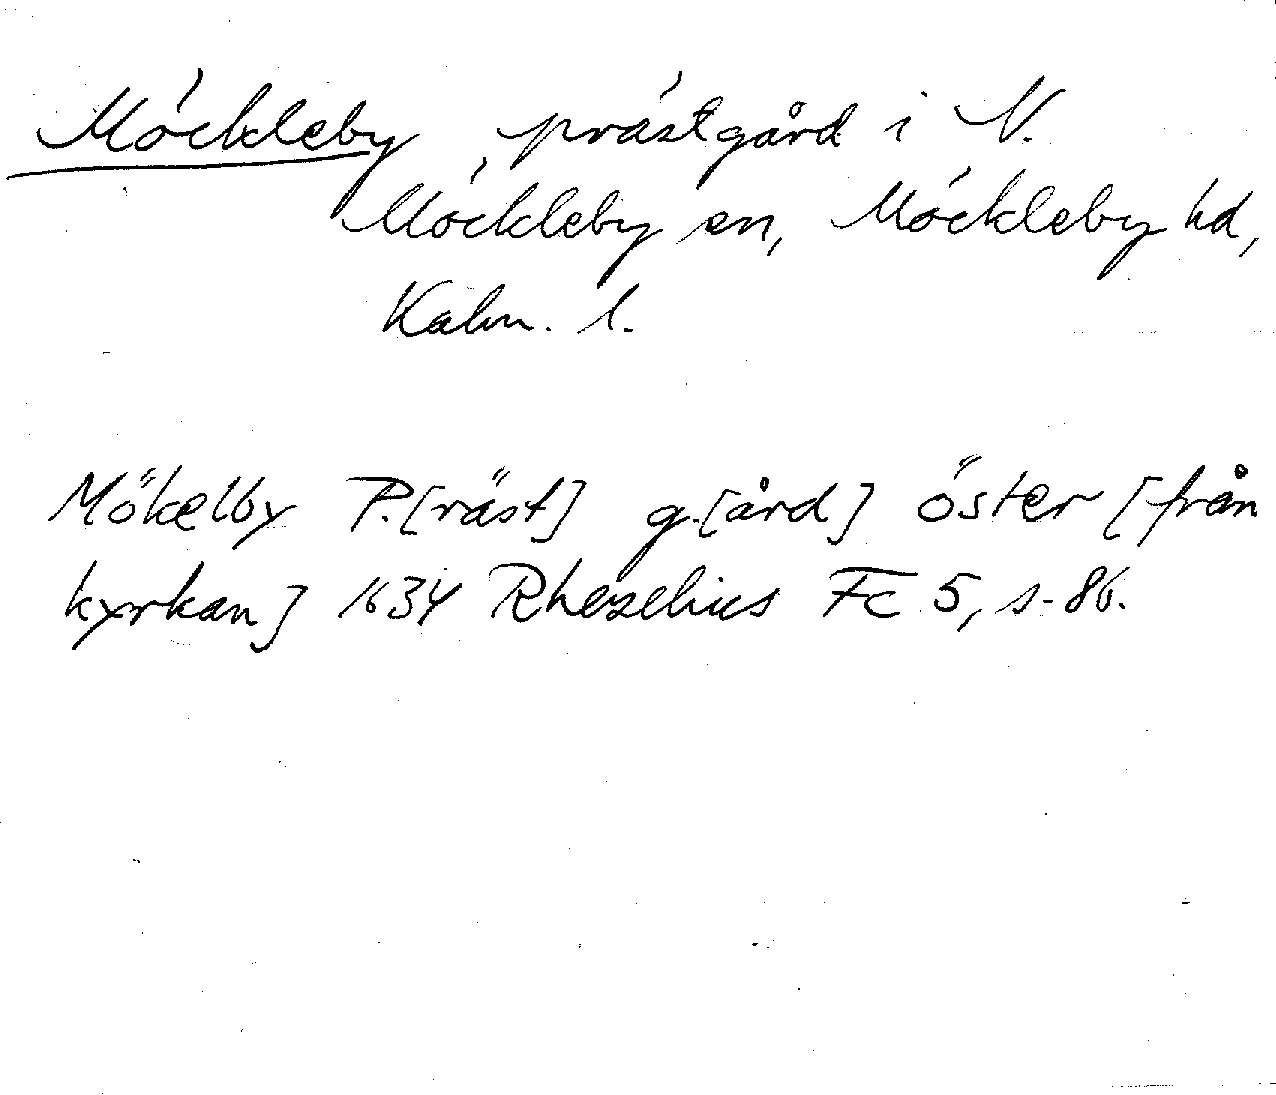 Möckleby, prästgård i N.
Möckleby sn, Möckleby hd,
Kalm. l.
Mökelby P.[räst] g.[ård] öster [från
kyrkan] 1634 Rhezelius Fc 5, s. 86.